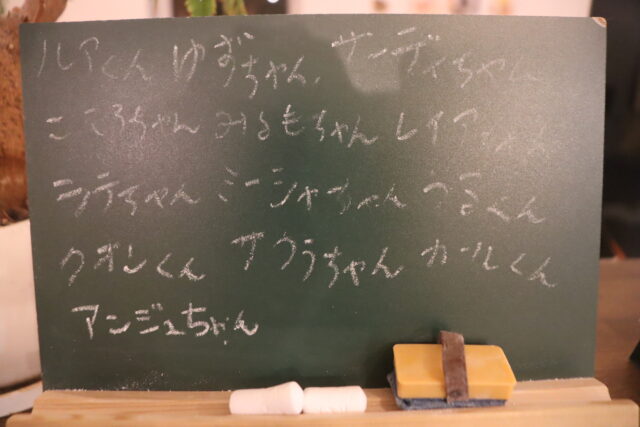 ルアくん ゆずちゃん、サンディちゃん
こころちゃん みるもちゃん レイア
シテちゃん ミーシャちゃん つるくん
クオンくん アクラちゃん カールくん
アンジュちゃん